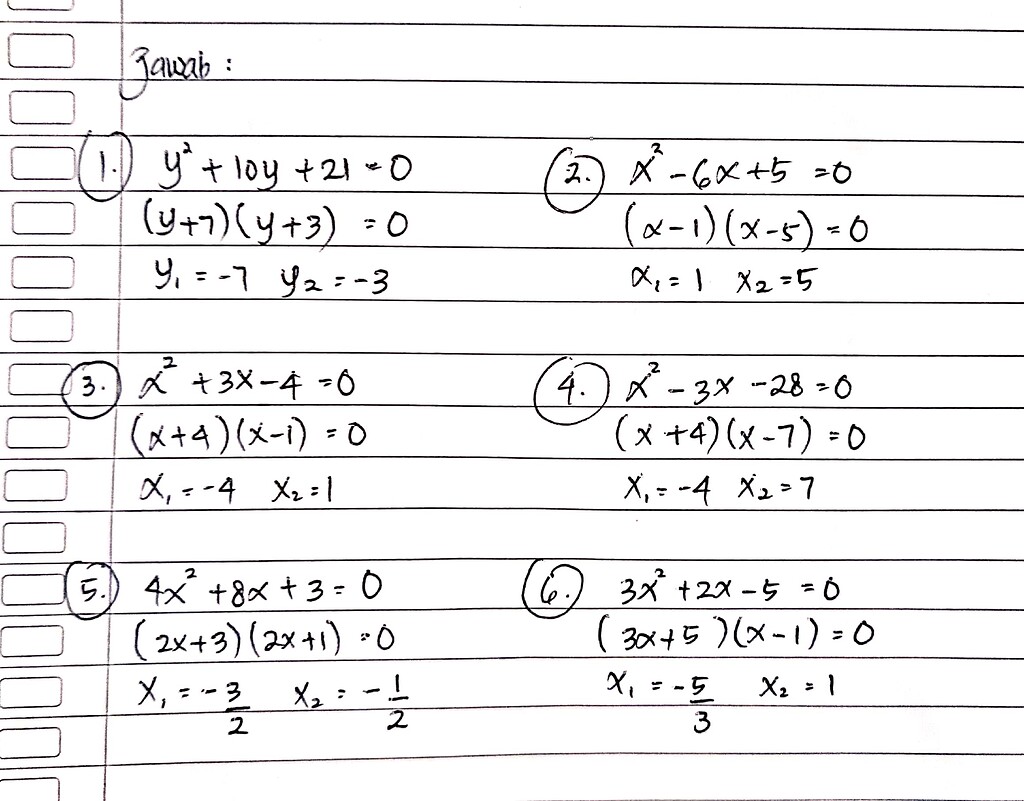 Jawab :
1. y² + 10y + 21 = 0
(y+7)(y+3) = 0
y₁ = -7 y₂ = -3
2. x² - 6x + 5 = 0
(x-1)(x-5) = 0
x₁ = 1 x₂ = 5
3. x² + 3x - 4 = 0
(x+4)(x-1) = 0
x₁ = -4 x₂ = 1
4. x² - 3x - 28 = 0
(x+4)(x-7) = 0
x₁ = -4 x₂ = 7
5. 4x² + 8x + 3 = 0
(2x+3)(2x+1) = 0
x₁ = -3/2 x₂ = -1/2
6. 3x² + 2x - 5 = 0
(3x+5)(x-1) = 0
x₁ = -5/3 x₂ = 1